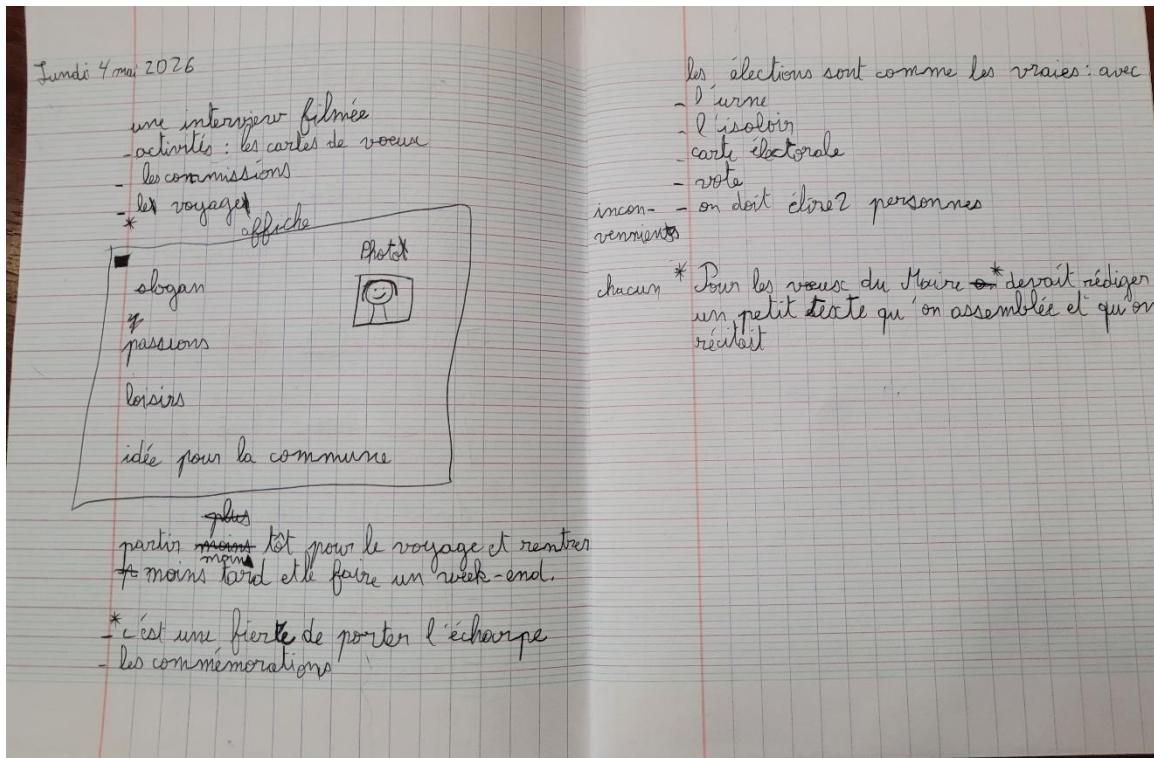 Lundi 4 mai 2026
une interview filmée
- activités : les cartes de voeux
- les commissions
- le voyage
*
affiche
Photo
slogan
passions
loisirs
idée pour la commune
plus
partir moins tôt pour le voyage et rentrer
moins
moins tard et le faire un week-end.
*
- c'est une fierté de porter l'écharpe
- les commémorations
les élections sont comme les vraies : avec
- l'urne
- l'isoloir
- carte électorale
- vote
incon- - on doit élire 2 personnes
venrients
chacun * Pour les voeux du Maire on * devait rédiger
un petit texte qu'on assemblée et qu'on
récitait